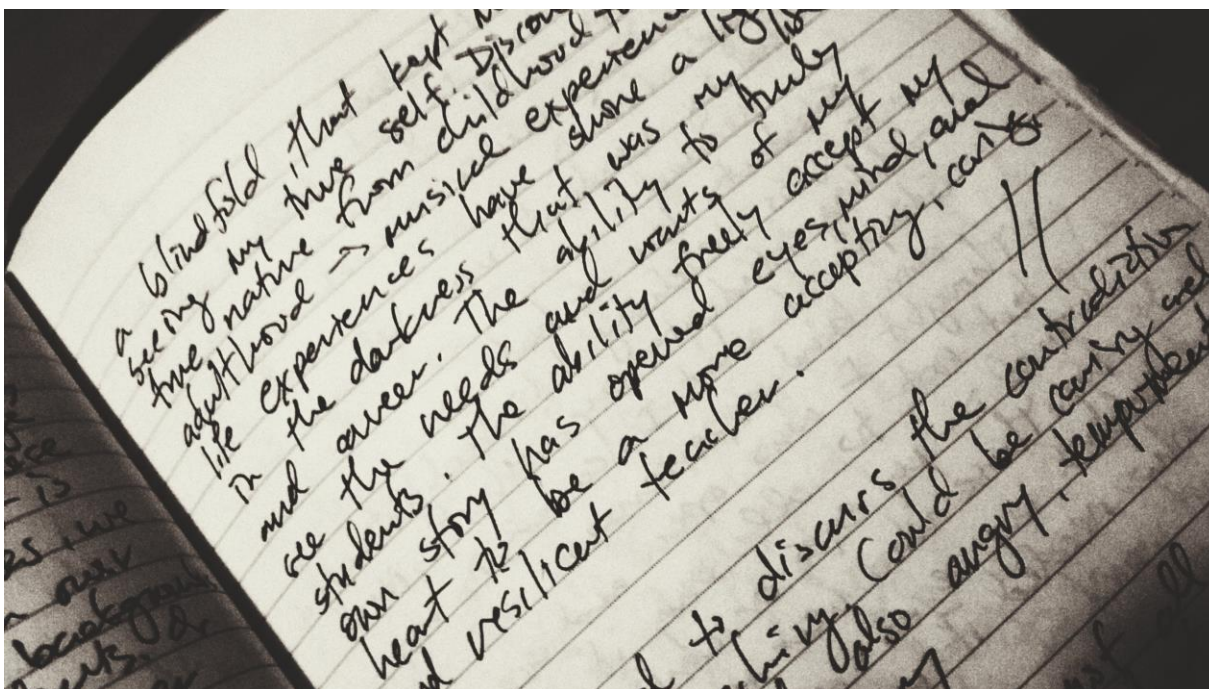 a blindfold, that kept
seeing my true self. Discon
true nature from childhood
adulthood → musical experience
life experiences have shone a lig
in the darkness that was my
and career. The ability to truly
see the needs and wants of my
students. The ability freely accept my
own story has opened eyes, mind, and
heart to be a more accepting, caring,
and resilient teacher.
to discuss the contradictive
Could be caring and
also angry, temperment
all
is
es, we
our
background